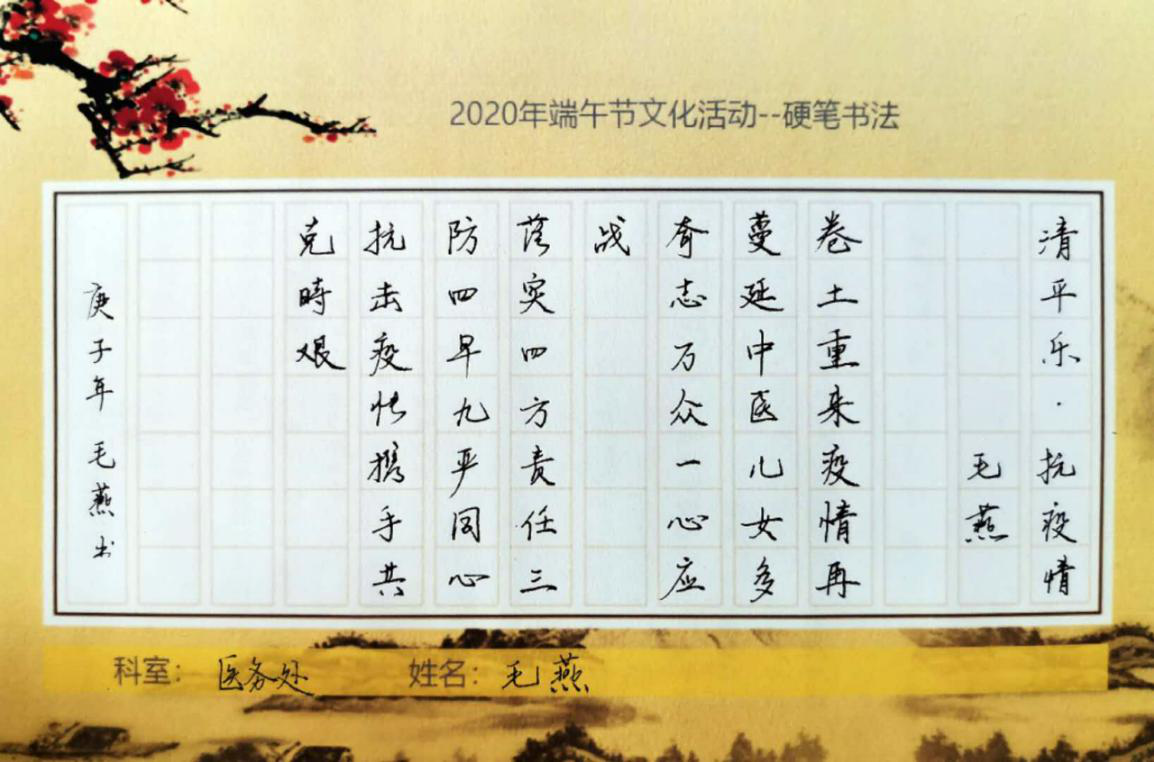 2020年端午节文化活动--硬笔书法
清平乐·抗疫情
毛燕
卷土重来疫情再
蔓延中医儿女多
奇志万众一心应
战
落实四方责任三
防四早九严同心
抗击疫状携手共
克時艰
庚子年 毛燕书
科室：医务处 姓名：毛燕